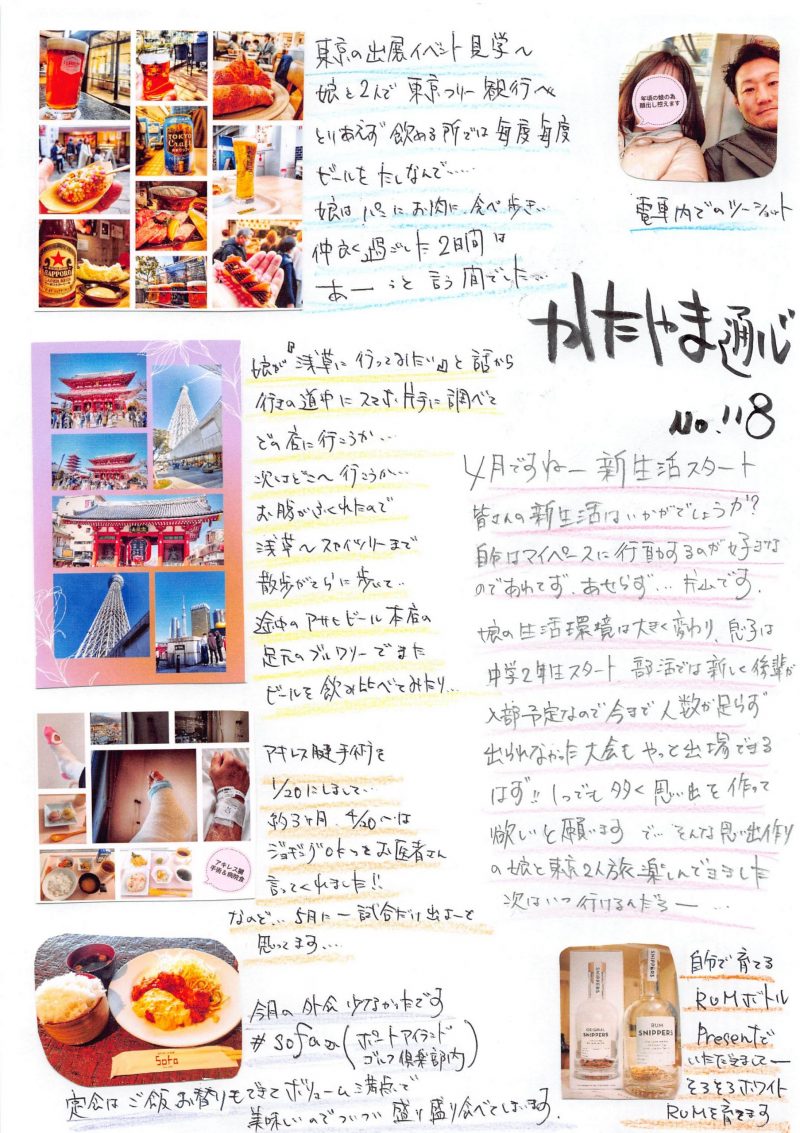 東京の出展イベント見学へ
娘と2人で東京フリー観行へ
とりあえず飲める所では毎度毎度
ビールをたしなんで……
娘は パンにお肉に、食べ歩き…
仲良く過ごした2日間は
あーっと言う間でした…
年頃の娘の為
顔出し控えます
電車内でのツーショット
かたやま通心
No.118
娘が『浅草に行ってみたい』と話から
行きの道中にスマホ片手に調べて
どの店に行こうか…
次はどこへ行こうか…
お腹がふくれたので
浅草〜スカイツリーまで
散歩がてらに歩いて…
途中のアサヒビール本店の
足元のブルワリーでまた
ビールを飲み比べてみたり…
4月ですねー 新生活スタート
皆さんの新生活はいかがでしょうか?
自分はマイペースに行動するのが好きな
のであわてず、あせらず… 片山です.
娘の生活環境は大きく変わり、息子は
中学2年生スタート 部活では新しく後輩が
入部予定なので今まで人数が足らず
出られなかった大会もやっと出場できる
はず!! 1つでも多く思い出を作って
欲しいと願います で…そんな思い出作り
の娘と東京2人旅楽しんできました
次はいつ行けるんだろー…
アキレス腱手術を
1/20にしまして…
約3ヶ月. 4/20〜は
ジョギングOKってお医者さん
言ってくれました!!
なので… 5月に一試合だけ出よーと
思ってます…
アキレス腱
手術&病院食
今月の外食少なかったです
#sofaさん(ポートアイランド
ゴルフ倶楽部内)
定食はご飯お替りもできてボリューム満点で
美味しいのでついつい盛り盛り食べてしまいます.
自分で育てる
RUMボトル
Presentで
いただきましてー
そろそろホワイト
RUMを育てます
TOKYO
Craft
SAPPORO
Sofa
SNIPPERS
ORIGINAL
SNIPPERS
RUM
SNIPPERS